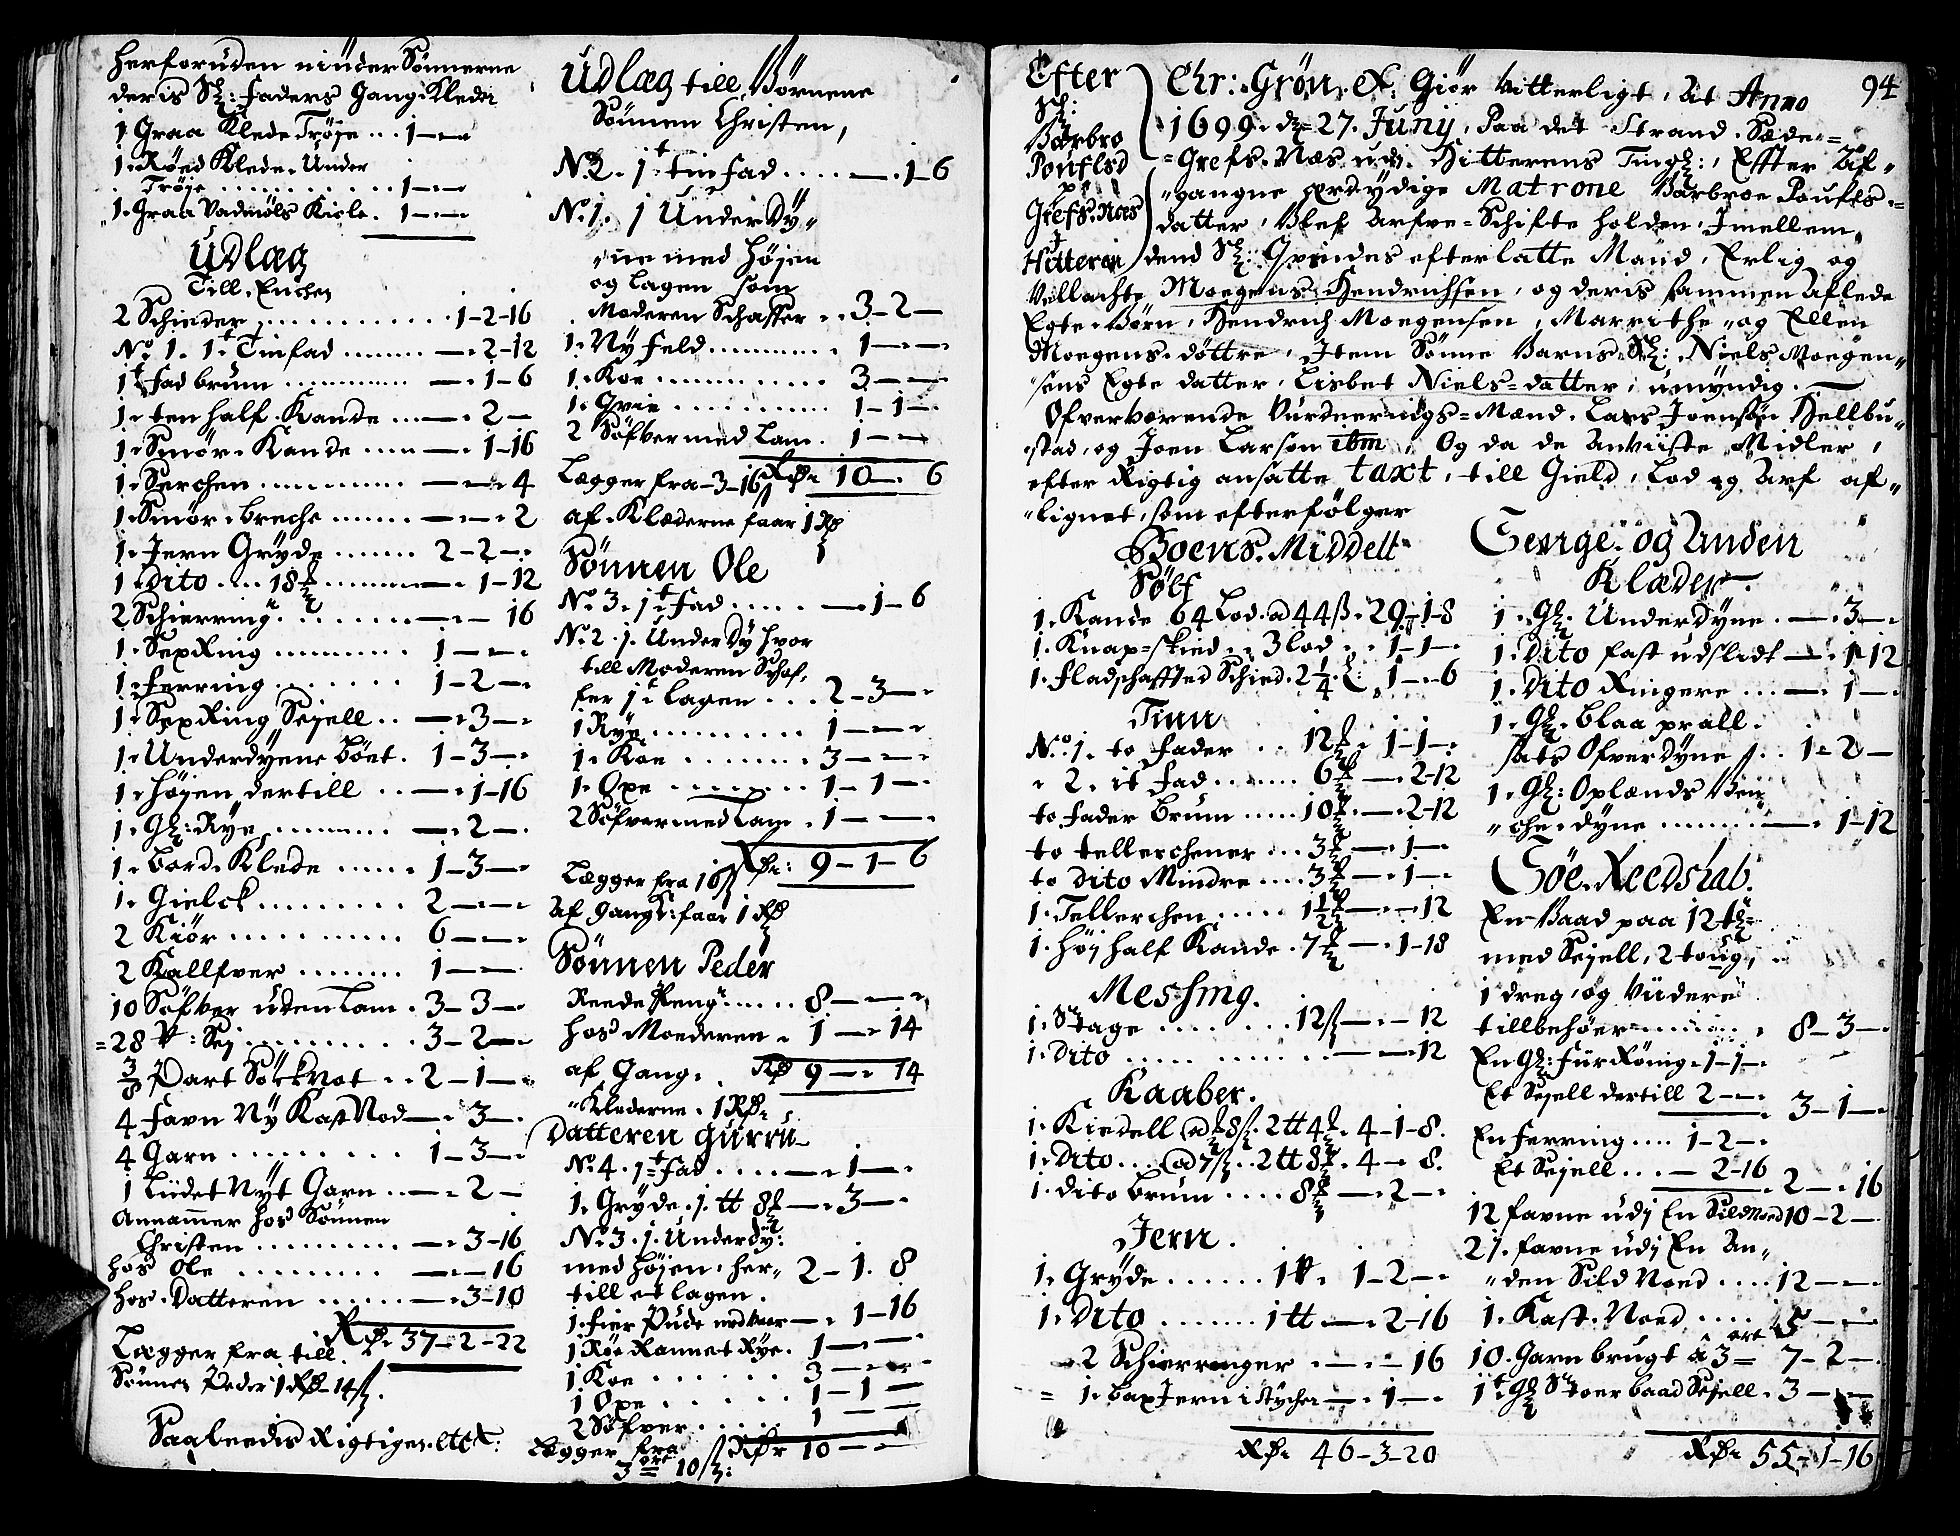 Herforuden niuder Sönnerne
deris Sl: Faders Gang-Kleder
1 Graa Klede Trøje ... 1—
1. Røed Klede. Under
Trøje ............ 1—
1. Graa Vadmöls Kiole. 1—
Udlæg
Till Enchen
2 Schieder ............ 1-2-16
No 1. 1t Tinfad ....... —. 2-12
1t fad brum ............ —. 1-6
1. ten half Kande ... —. 2—
1. Smör. Kande .... —. 1-16
1. Serchen ............ — — 4
1. Smør. breche ....... — — 2
1. Jern Gryde ....... 2-2—
1 dito .... 18 ........ —. 1-12
2 Schierring ......... — — 16
1. SexRing ......... 1— —
1. Ferring ....... 1-2—
1. SexRing Sejell .. —. 3—
1. Underdyene böet. 1-3—
1. Højen dertill .. —. 1-16
1. Gl: Rye ......... —. 2—
1. bord. Klede ..... 1-3—
1. Gielck ......... 2— —
2 Kiör .......... 6— —
2 Kallfver ....... 1— —
10 Söfver uden Lam. 3-3—
28 : Sej ......... 3-2—
3/8 Part Sörknot .. 2-1—
4 favn Ny KastNod —. 3—
4 Garn ......... 1-3—
1 Lüdet Nyt Garn .. —. 2—
Annammer hos Sönnen
Christen ......... —. 3-16
hos Ole ......... — — 16
hos. Datteren ...... —. 3-10
Rdr 37-2-22
Lægger fra till
Sönnen Peder 1 Rd- 14 ß.
Saaleedis Rigtigen. etc:
Udlæg till Børnene
Sönnen Christen,
No 2. 1t tinfad .... —. 1-6
No. 1. 1 Underdy-
ne med Højen
og Lagen som
Moderen Schaffer .. 3-2—
1. Ny feld ......... 1— —
1. Koe ............ 3— —
1. Qvie .......... 1-1—
2 Söfver med Lam. 1— —
Lægger fra-3-16ß Rdr 10—. 6
af. Klæderne faar 1 Rd
Sönnen Ole
No. 3. 1t Fad ..... —. 1-6
No. 2. 1. Underdy hvor
till Moderen Schaf,
fer 1t Lagen ... 2-3—
1 Rye .......... 1— —
1. Koe ......... 3— —
1. Oxe ......... 1-1—
2 Söfver med Lam. 1— —
Rdr: 9-1-6
Lægger fra 16ß
Af Gangk: faar 1 Rd
Sönnen Peder
Reede Peng: ..... 8— —
hos Moederen. 1— 14
Rd 9— 14
af Gang.
Klederne. 1 Rdr
Datteren Gurru
No. 4. 1t fad ..... —. 1—
1. Gryde. 1. tt 8 —. 3—
No. 3. 1. Underdy:
med Højen. her-
till et Lagen. 2-1. 8
1. fier Pude med Vaer —. 1-16
1 Røe Rannet Rye. 1— —
1 Koe ...... 3— —
1 Oxe ...... 1-1—
2 Söfver ...... 1— —
Lægger fra Rdr 10— —
3 ort 10 ß:
94
Efter
Sl:
Barbro
Poufls d
på
Grefs. Næs
i
Hitteren
Chr: Grøn, Giør vitterligt, at Anno
1699. d 27. Junij, Paa det Strand. Sæde
Grefs. Næs udi Hitterens Tingl:, Effter Af-
gangne ærdydige Matrone Barbroe Poufls-
datter, Blef Arfve-Schifte holden, Imellem
dend Sl: Qvindes efterlatte Mand, Erlig og
Vellachte Moegens Hendrichsen, og deris sammen Aflede
Egte Børn, Hendrich Moegensen, Marrithe, og Ellen
Moegens. döttre, Item Sönne Barns Sl: Niels Moegen-
sens Egte datter, Lisbet Niels-datter, umyndig.
Ofverværende Vurderrings-Mænd. Lars Joensön Kjellbu-
stad, og Joen Larsen ibm, Og da de Anviiste Midler,
efter Rigtig ansatte taxt, till Gield, Lod og Arf af-
lignet, som efterfölger
Boens. Middell
Sølf
1. Kande 64 Lod. a 44 ß. 29-1-8
1. Knap-skied .. 3 lod .. 1-1—
1. Fladschafted Schied. 2 1/4 L: 1—. 6
Tinn
No 1. to Fader .. 12 . 1-1—
2. it fad ...... 6 —. 2-12
to fader brum ..... 10 —. 2-12
to tellerchener ... 3 —. 1—
to dito Mindre ... 3 —. 1—
1. Tellerchen ..... 1 1/2 — — 12
1. Høj half Kande . 7 —. 1-18
Messing.
1. Stage ....... 12ß — — 12
1. dito ........ — — 12
Kaaber.
1. Kiedell @ 8ß. 2tt 4 . 4-1-8.
1. Dito ... @ 7ß .. 2tt 8 . 4— 8.
1. dito brum .... 8 —. 2—
Jern.
1. Gryde ...... 1 . 1-2—
1. Dito ....... 1tt —. 2-16
2 Schierringer . — — 16
1. baxJern i stycher —. 1—
Rdr 46-3-20
Senge. og Anden
Klæder
1. Gl. Underdyne. —. 3—
1. Dito fast udslidt —. 1-12
1. Dito Ringere ... —. 1—
1. Gl. blaa prall.
sats Ofverdyne . 1-2—
1. Gl: Oplænds Ben-
che. dyne ........ —. 1-12
Söe. Reedskab.
En Baad paa 12
med Sejell, 2 toug,
1 dreg, og Viidere
tillbehøer ....... 8-3—
En Gl: fürRöning. 1-1—
Et Sejell dertill 2—
3-1—
En Ferring .... 1-2—
Et Sejell ... — 2-16
2—. 16
12 favne udj En SildNoed 10-2—
21. favne udj En An-
den Sild Noed .... 12— —
1. Kast. Noed .... 5— —
10. Garn brugt à 3 ort 7-2—
1. Gl Stoer baad Sejell. 3— —
Rdr 55-1-16